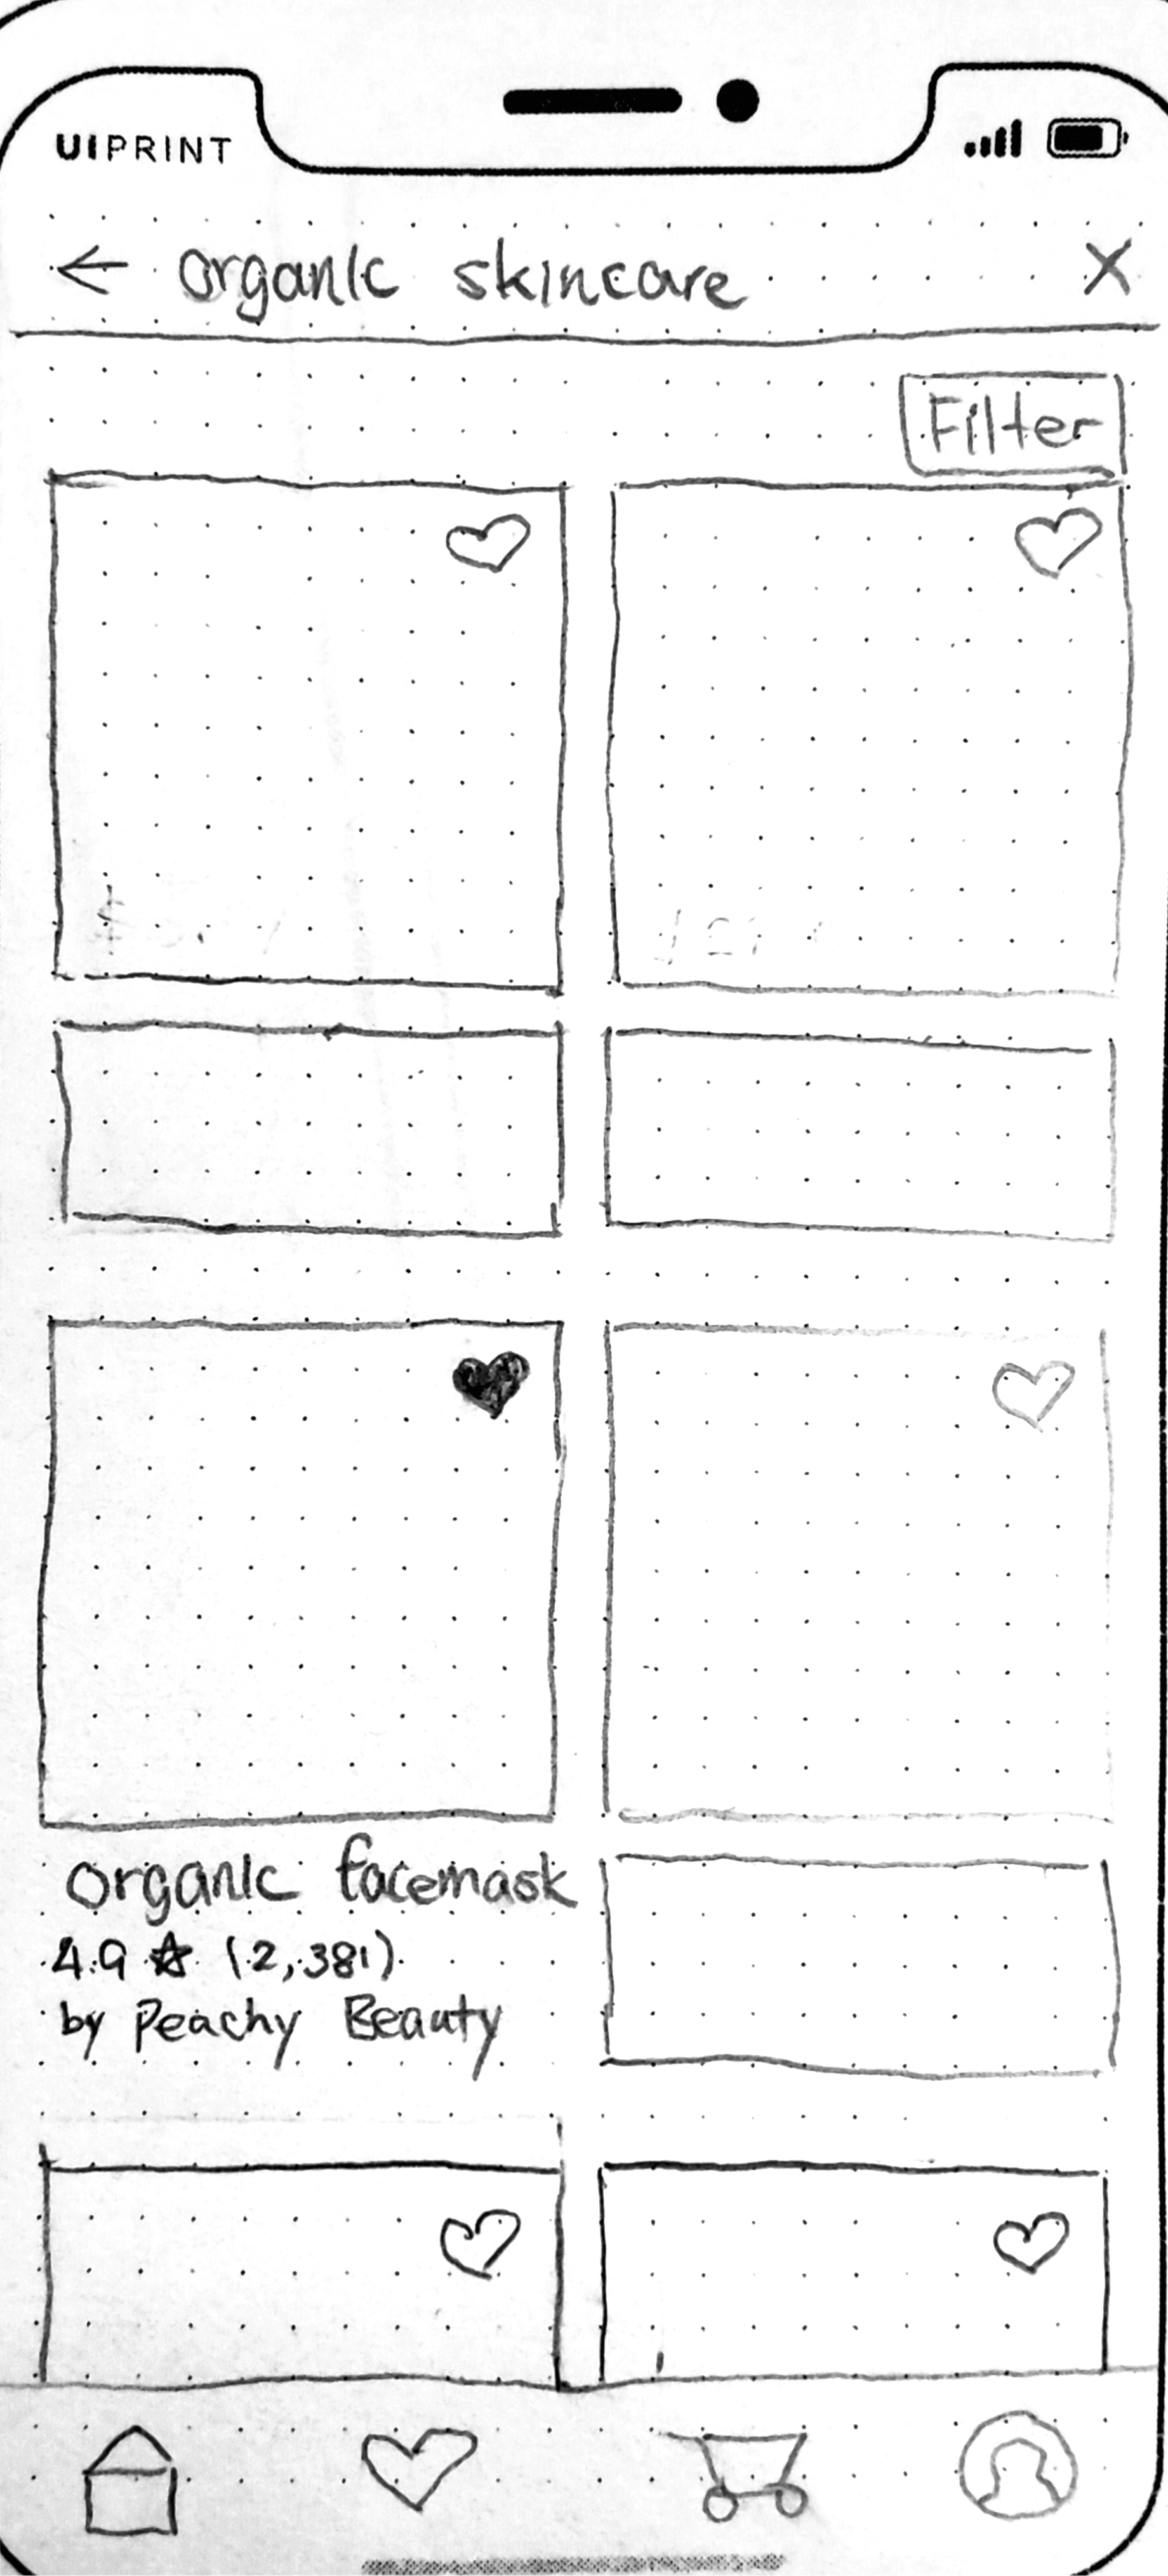 UIPRINT
← organic skincare X
Filter
organic facemask
4.9 ☆ (2,381)
by Peachy Beauty